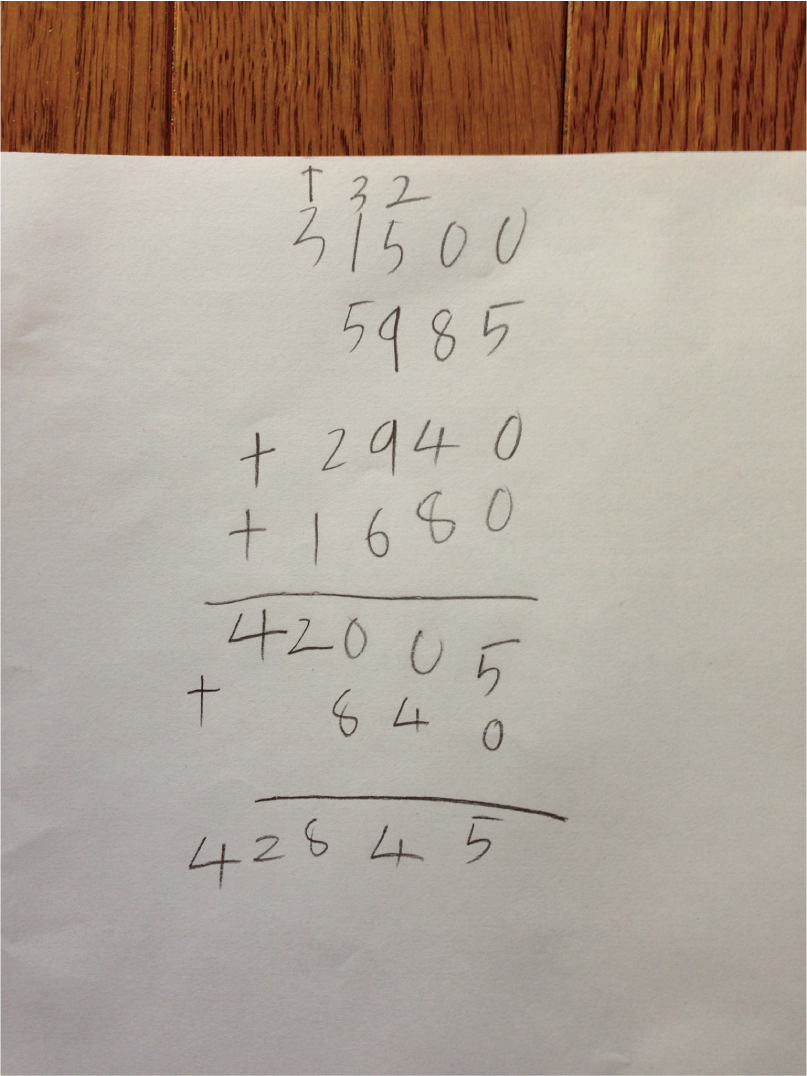 1 3 2
31500
5985
+ 2940
+ 1680
42005
+ 840
42845